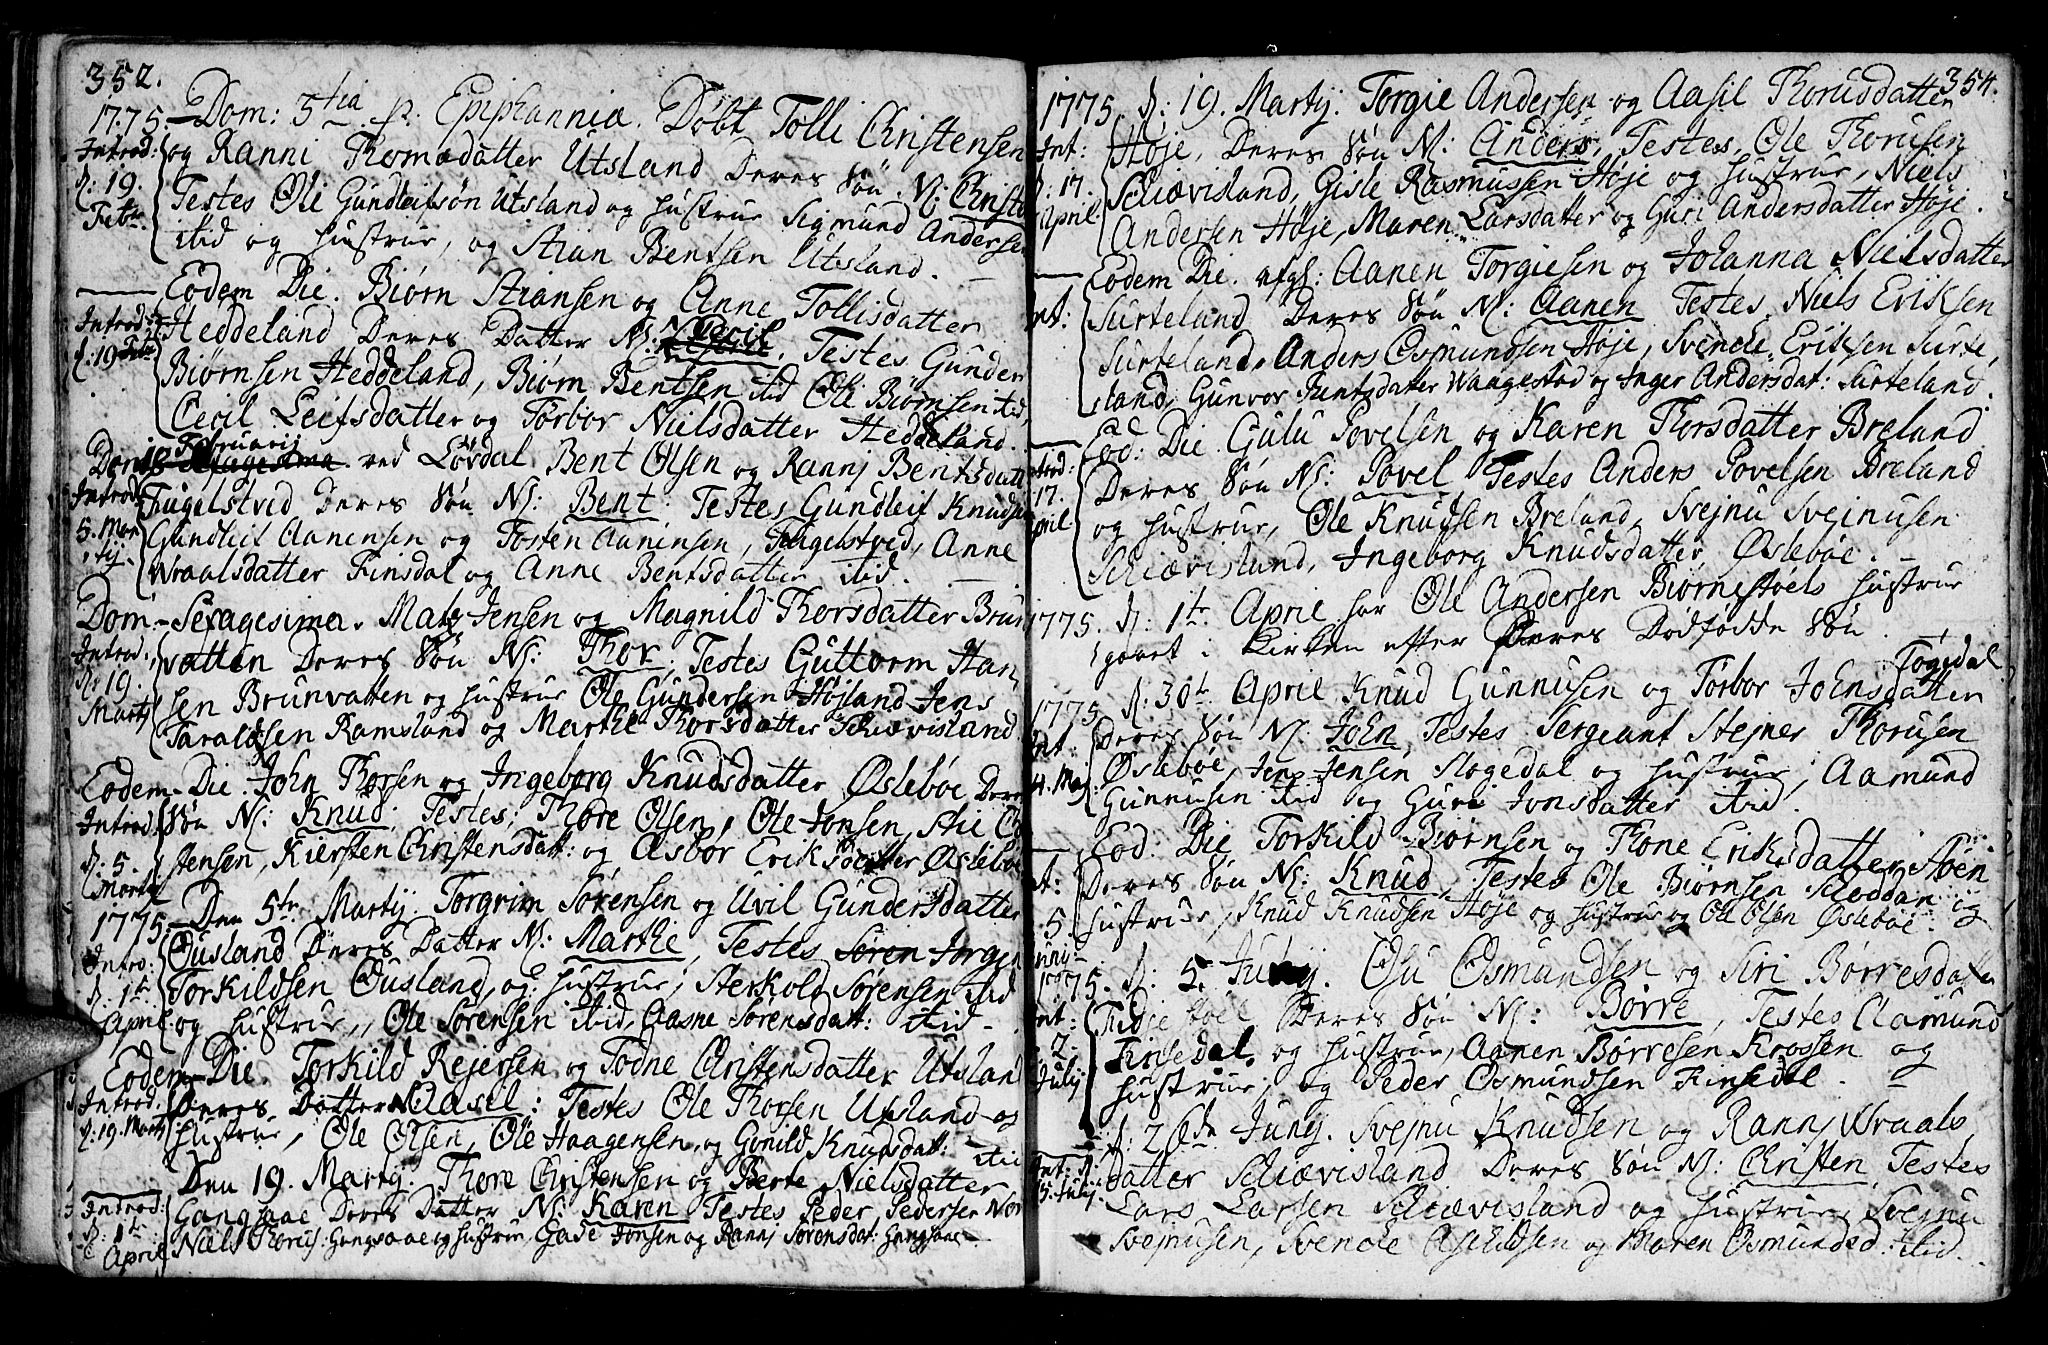 352.
1775. Dom: 5tia p. Epiphannia. Døbt Tolli Christensen
Introd: og Ranni Thomadatter Utsland Deres Søn N: Christe
d: 19. Testes Ole Gundleifsøn Utsland og Hustrue Sigmund Andersen
Febr. itid og Hustrue, og Stian Bentsen Utsland.
Eodem Die. Biørn Stiansen og Anne Tollisdatter
Introd: Heddeland Deres Datter N: Cecil. Testes Gunder
d: 19 Febr Biørnsen Heddeland, Biørn Bentsen itid Ole Biørnsen itid,
Cecil Leifsdatter og Torbor Nielsdatter Heddeland.
18 Februarij
Dom: Sexagesima ved Løvdal Bent Olsen og Rannj Bentsdatt
Introd: Fugelstvid Deres Søn N: Bent: Testes Gundleif Knudsen
5. Mar Gundleif Aanensen og Tosten Aanensen, Fugelstved, Anne
tij. Wraalsdatter Finsdal og Anne Bentsdatter itid.
Dom: Sexagesima. Matz Jensen og Magnild Thorsdatter Brun
Introd. vatten Deres Søn N: Thor, Testes Guttorm Han
d: 19. sen Brunvatten og Hustrue Ole Gundersen Højland Jens
Martij Taraldsen Ramsland og Marthe Thorsdatter Schævisland
Eodem Die. John Thorsen og Ingeborg Knudsdatter Øslebøe Deres
Introd. Søn N: Knud, Testes: Thore Olsen, Ole Jonsen, Stie Chri
d: 5. stensen, Kiersten Christensdatt: og Asbor Eriksdatter Øslebøe
Martij
1775 Den 5te Martij. Torgrim Sørensen og Uvil Gundersdatter
Introd: Ousland Deres Datter N: Marthe, Testes Søren Jørgen
d. 1te Torkildsen Ousland, og Hustrue, Sterkold Sørensen itid
April og Hustrue, Ole Sørensen itid, Aasne Sørensdatt: itid.
Eodem Die. Torkild Rejersen og Todne Christensdatter Utsland
Introd. Deres Datter N: Aasel: Testes Ole Thorsen Utsland og
d: 19. Martij Hustrue, Ole Olsen, Ole Haagensen, og Gonild Knudsdat: itid
Den 19. Martij. Thore Christensen og Berte Nielsdatter
Introd: Gangsaae Deres Datter N: Karen Testes Peder Pedersen
d. 1te Niels Thorus: Gangsaae og Hustrue, Gade Jonsen og Rannj Sørensdat: Gangsaae
April
354.
1775 d: 19. Martij. Torgie Andersen og Aasil Thorusdatter
Int: Høje, Deres Søn N: Anders, Testes, Ole Thorusen
d: 17. Schævisland, Gisle Rasmussen Høje og Hustrue, Niels
April Andersen Høje, Maren Larsdatter og Guri Andersdatter Høje.
Eodem Die. Aanen Torgiesen og Johanna Nielsdatter
Int: Surteland Deres Søn N: Aanen Testes, Niels Eriksen
Surteland, Anders Osmundsen Høje, Svenche Eriksen Surte,
land, Gunvor Tuntsdatter Waagestad og Inger Andersdat: Surteland.
Eod: Die. Gulu Povelsen og Karen Thorsdatter Breland
Introd: Deres Søn N: Povel Testes Anders Povelsen Breland
17. og Hustrue, Ole Knudsen Breland, Svejnu Svejnusen
April Schævisland, Ingeborg Knudsdatter Øslebøe.
1775. d: 1te April har Ole Andersen Biørnestøels Hustrue
gaaet i Kirken efter Deres Dødfødde Søn.
1775 d: 30te April Knud Gunnusen og Torbor Johnsdatter Togedal
Int: Deres Søn N: John, Testes Sergeant Stejner Thorusen
4. Maj: Øslebøe, Jens Jensen Slogedal og Hustrue, Aamund
Gunnusen itid og Guri Jonsdatter itid.
Eod: Die Torkild Biørnsen og Thone Eriksdatter Støen
Int: Deres Søn N: Knud, Testes Ole Biørnsen og
5 Hustrue, Knud Knudsen Høje og Hustrue og Ole Olsen Øslebøe.
Junij
1775. d: 5. Junij. Osu Osmundsen og Siri Børresdatter
Int: Deres Søn N: Børre, Testes Aamund
2. Finsedal, og Hustrue, Aanen Børresen Krossen og
Julij Hustrue, og Peder Osmundsen Finsedal.
d: 26de Junij. Svejnu Knudsen og Rannj Wraals
Int: d: datter Schævisland Deres Søn N: Christen, Testes
15. Julij Lars Larsen Schævisland og Hustrue, Svejnu
Svejnusen, Svenche Aschildsen og Maren Osmundsd: itid.